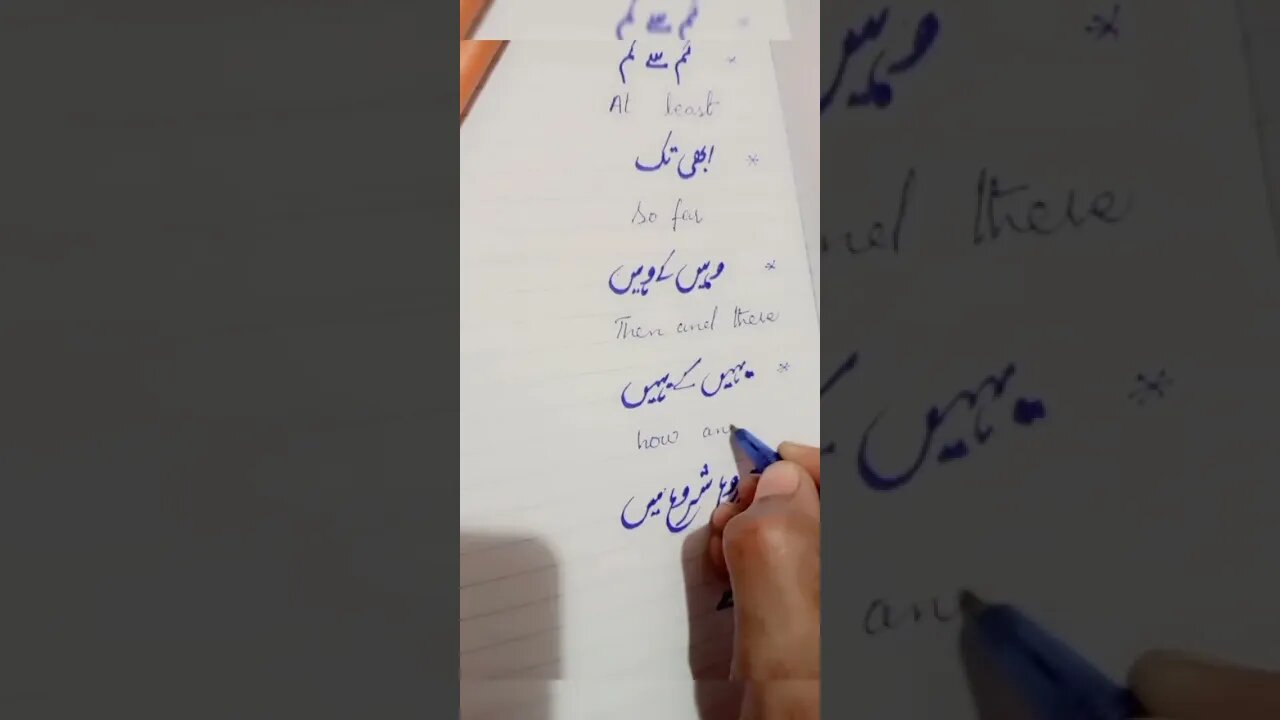 * کم سے کم
At least
* ابھی تک
So far
* وہیں کے وہیں
Then and there
* یہیں کے یہیں
how an
شروع میں